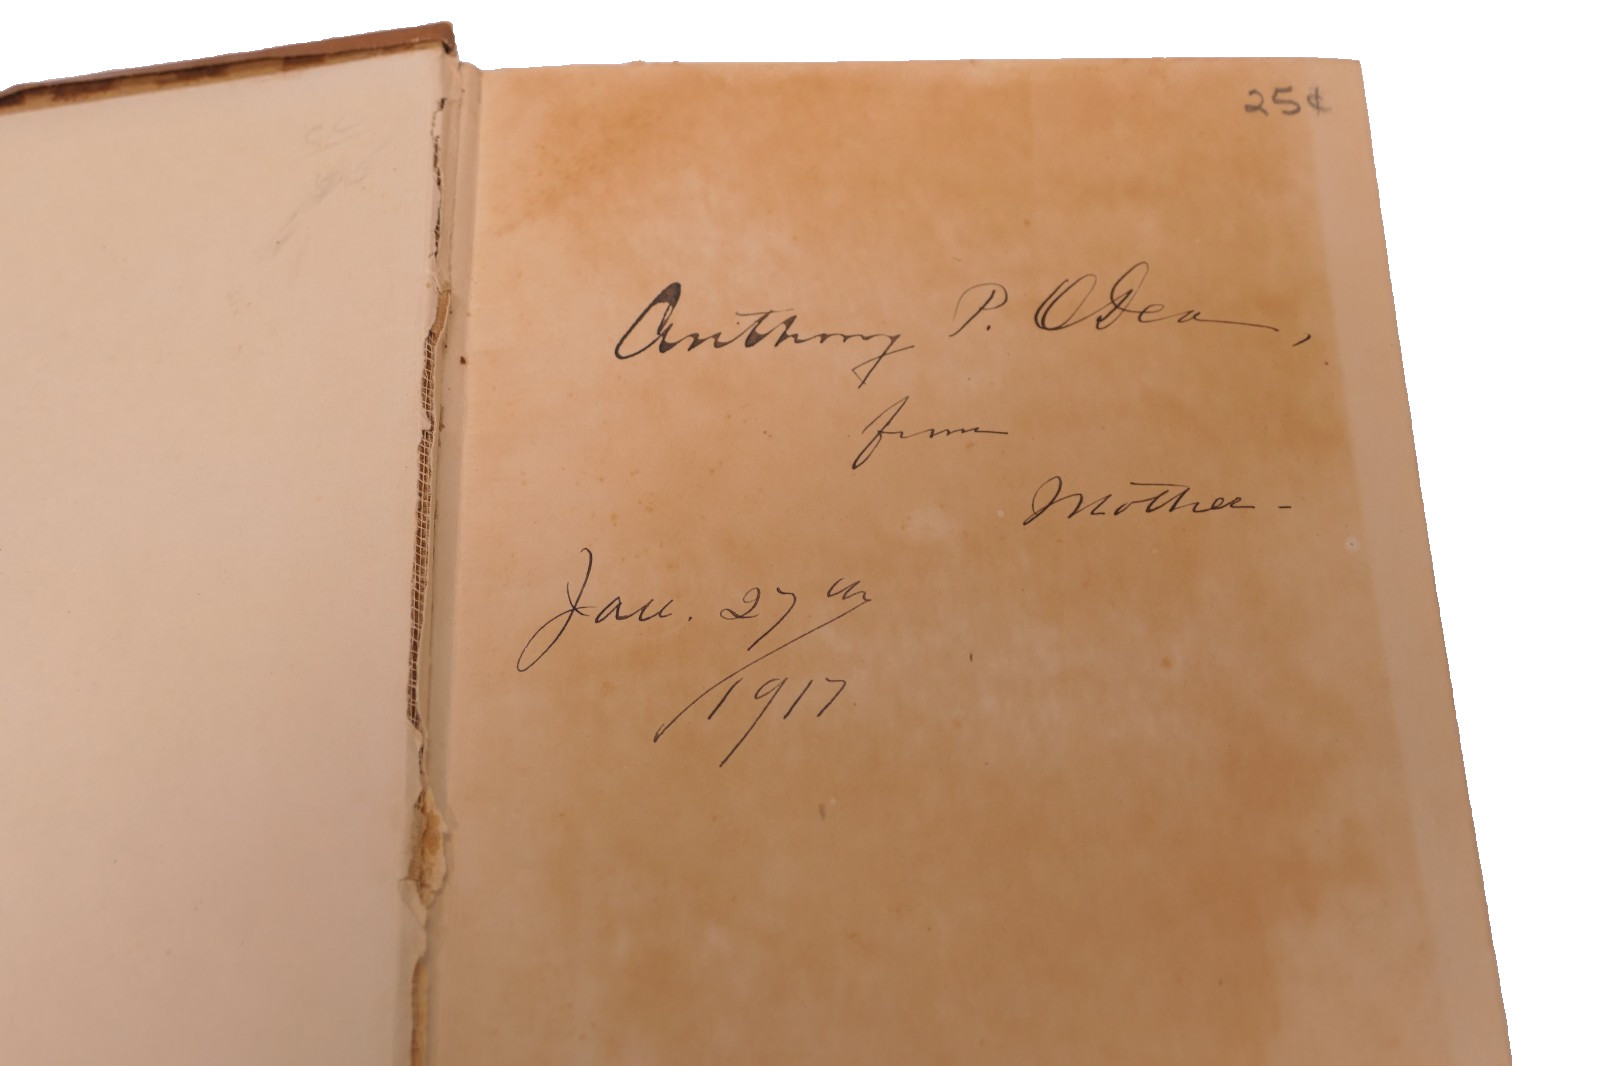 25¢
Anthony P. ODea,
from
Mother -
Jan. 27th
1917